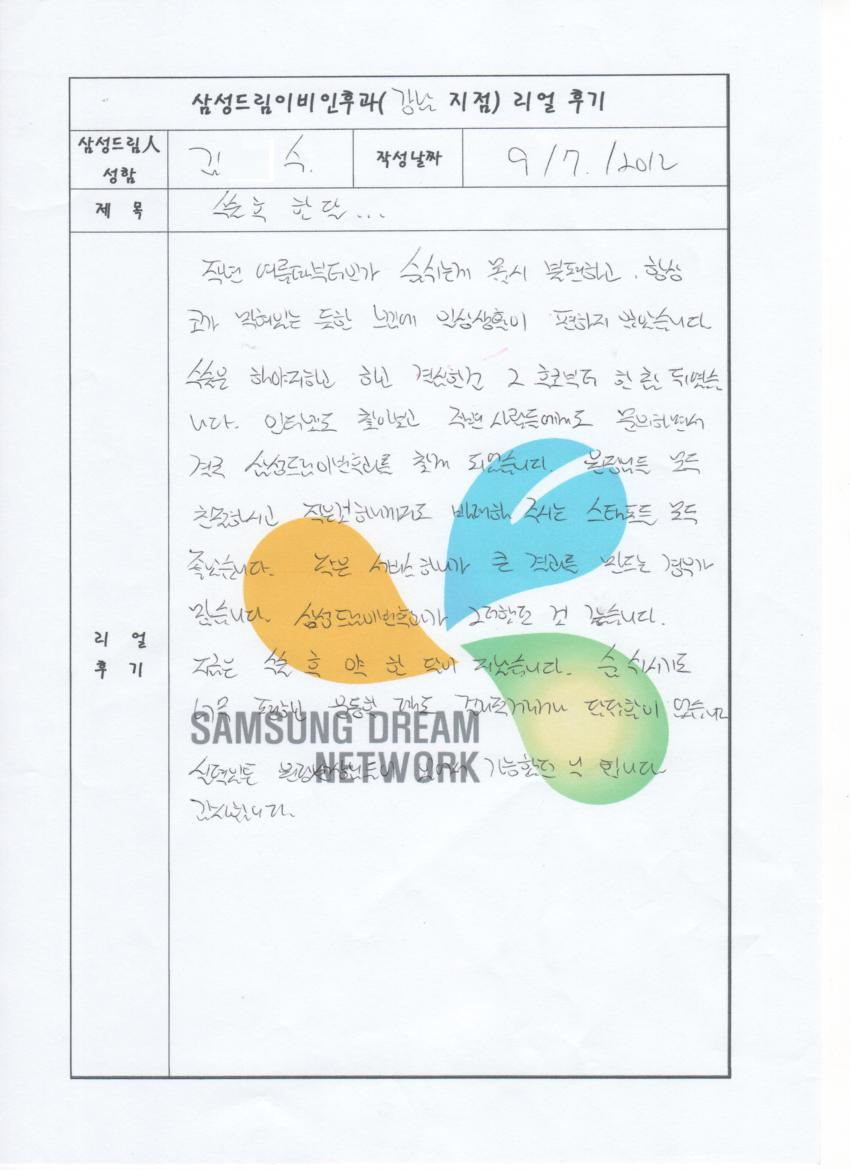 삼성드림이비인후과( 강남 지점) 리얼 후기
삼성드림人 성함
김 수.
작성날짜
9/7./2012
제 목
수술후 한달...
작년 여름때부터인가 숨쉬는게 몹시 불편하고. 항상
코가 막혀있는 듯한 느낌에 일상생활이 편하지 않았습니다.
수술은 해야지하고 하고 결심한건 그 후로부터 한 참 뒤였습
니다. 인터넷도 찾아보고 주변 사람들에게도 문의하면서
결국 삼성드림이비인후과를 찾게 되었습니다. 원장님들 모두
친절하시고 작은것 하나까지도 배려해 주시는 스태프들 모두
좋았습니다. 작은 서비스 하나가 큰 결과를 만드는 경우가
많습니다. 삼성드림이비인후과가 그러한 것 같습니다.
지금은 수술 후 약 한 달이 지났습니다. 숨 쉬시기도
너무 편하고 운동할 때도 답답함이 없습니다
실력있는 원장선생님들이 있어서 가능했던 일 입니다
감사합니다.
리 얼
후 기
SAMSUNG DREAM
NETWORK